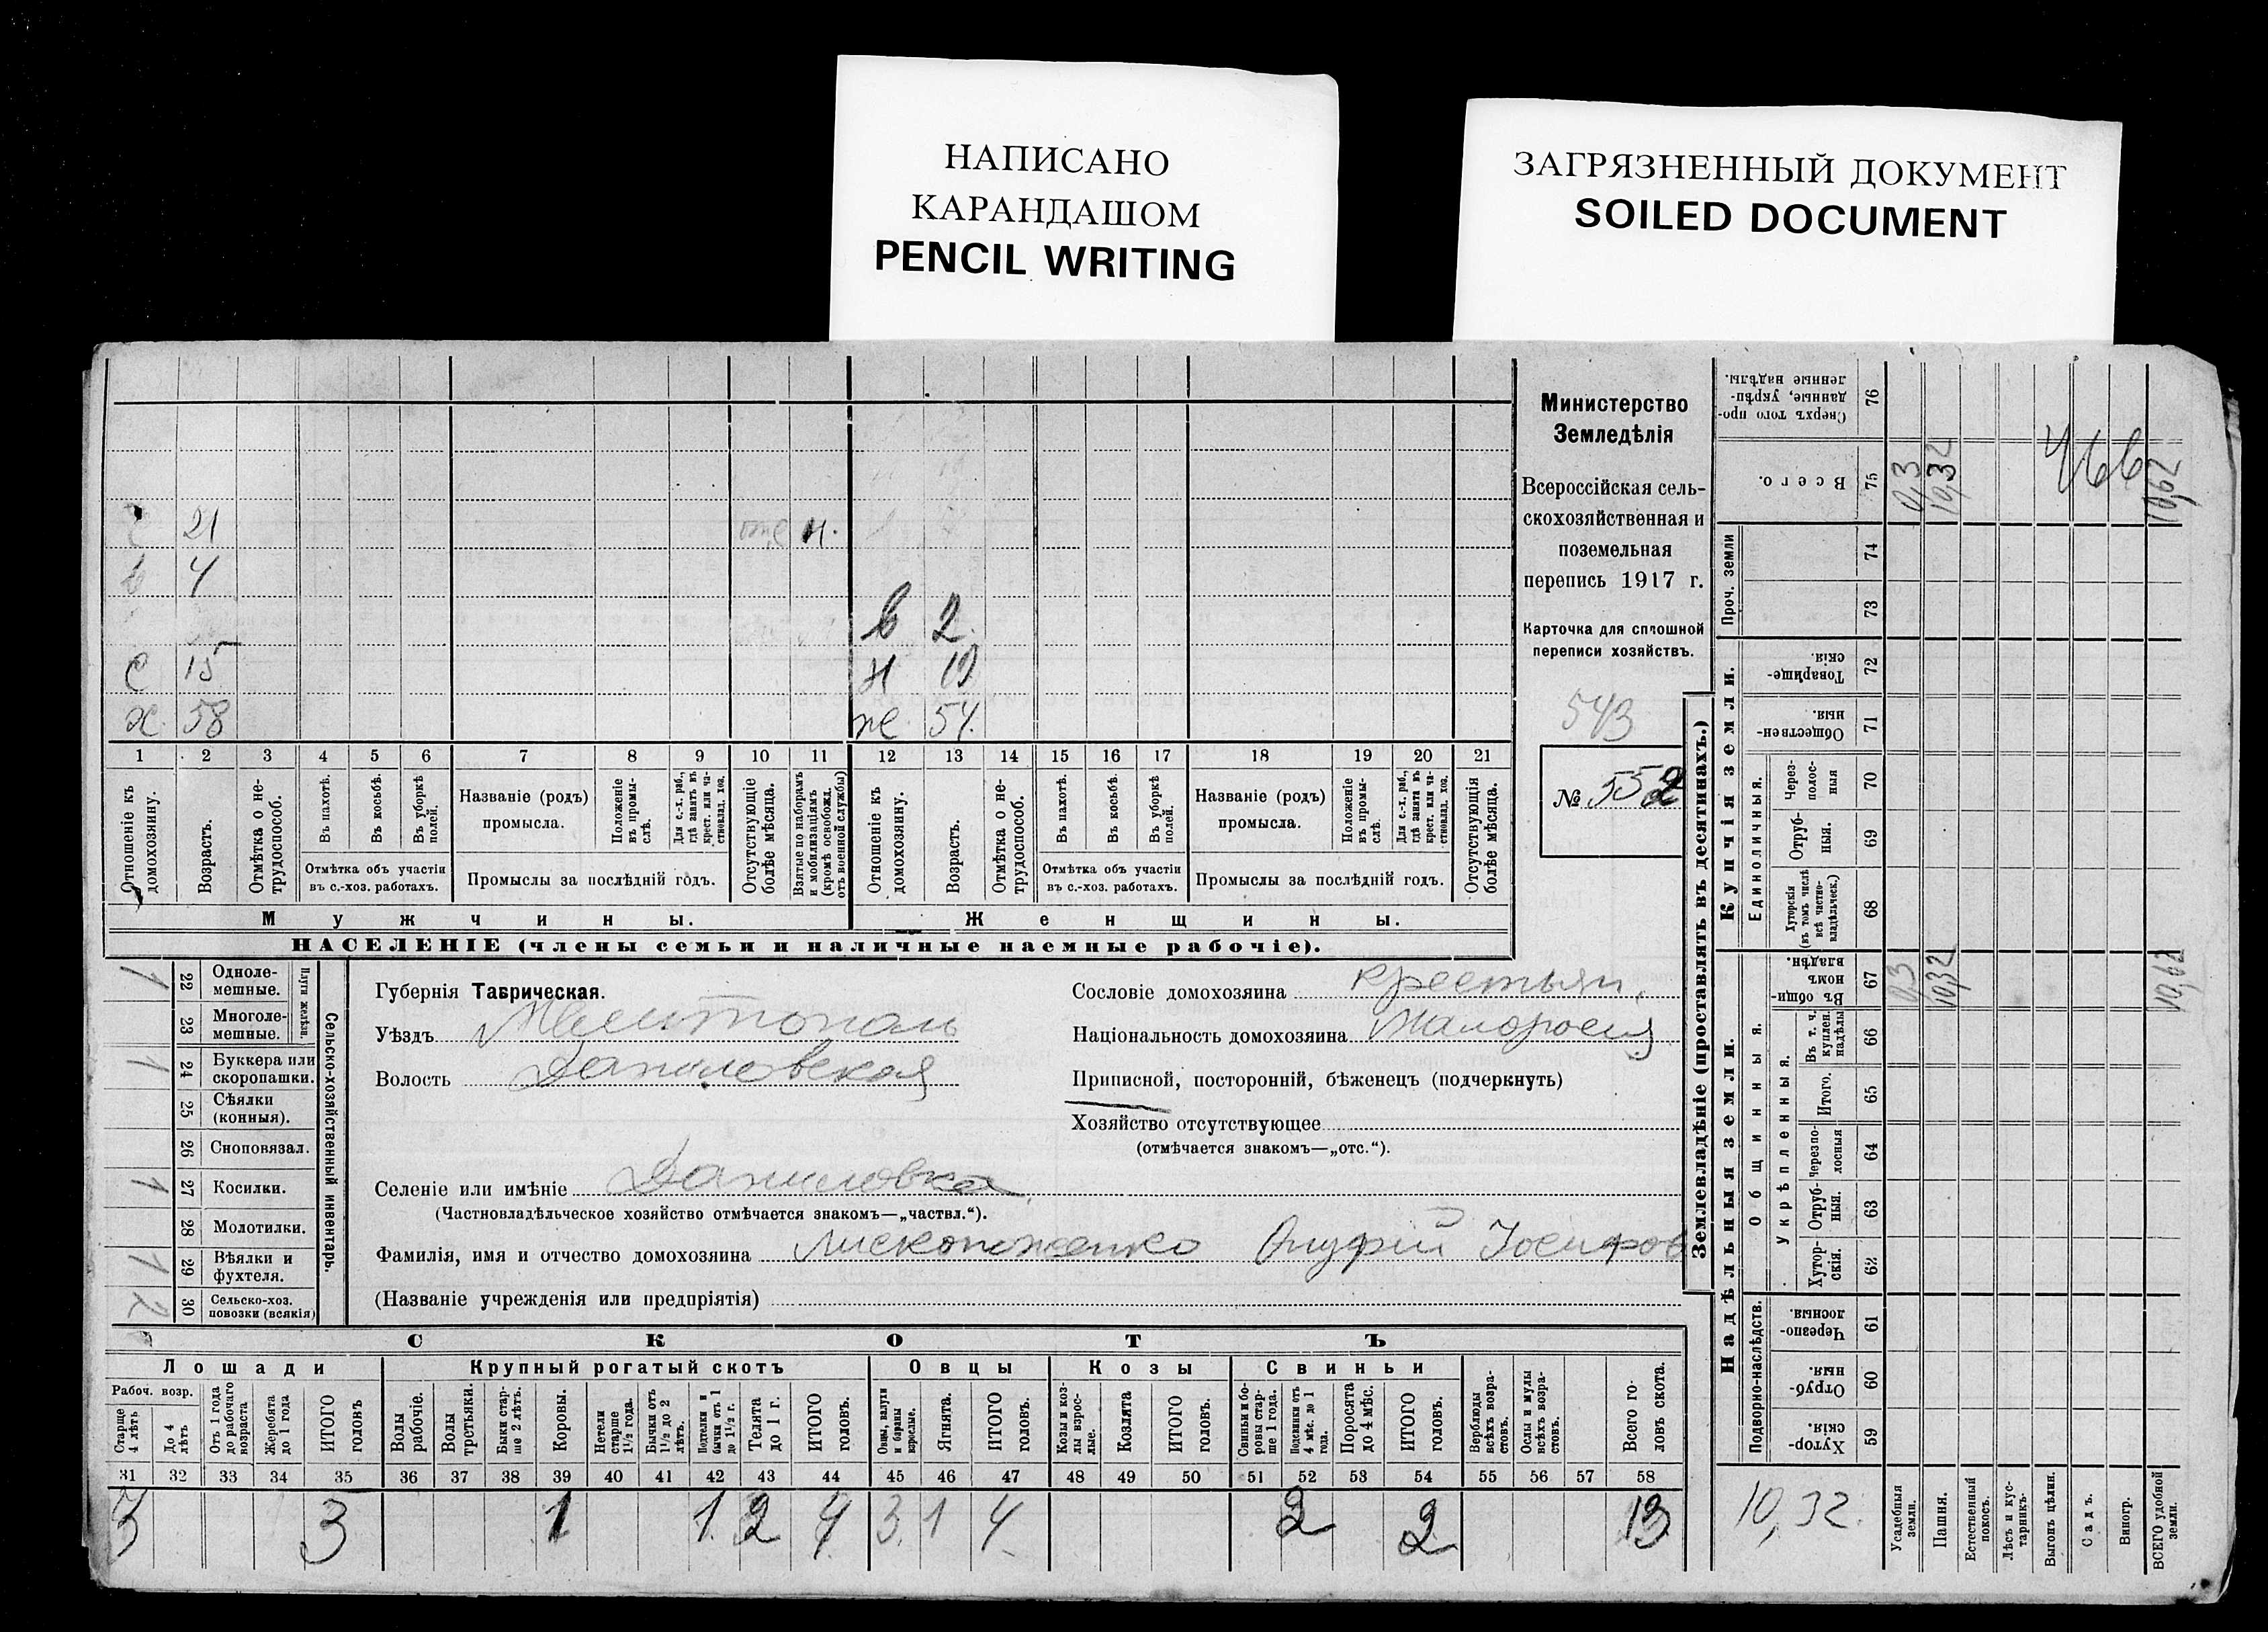 НАПИСАНО
КАРАНДАШОМ
PENCIL WRITING
ЗАГРЯЗНЕННЫЙ ДОКУМЕНТ
SOILED DOCUMENT
21 н.
в 4
в 2
с 15 н 19
х. 58 же. 54
1 2 3 4 5 6 7 8 9 10 11 12 13 14 15 16 17 18 19 20 21
Отношеніе къ домохозяину.
Возрастъ.
Отмѣтка о не-трудоспособ.
Въ пахотѣ.
Въ косьбѣ.
Въ уборкѣ полей.
Отмѣтка объ участіи въ с.-хоз. работахъ.
Названіе (родъ) промысла.
Положеніе въ промы-слѣ.
Для с.-х. раб., гдѣ занятъ въ крест. или ча-стновлад. хоз.
Промыслы за послѣдній годъ.
Отсутствующіе болѣе мѣсяца.
Взятые по наборамъ и мобилизаціямъ (кромѣ освобожд. отъ военной службы)
Отношеніе къ домохозяину.
Возрастъ.
Отмѣтка о не-трудоспособ.
Въ пахотѣ.
Въ косьбѣ.
Въ уборкѣ полей.
Отмѣтка объ участіи въ с.-хоз. работахъ.
Названіе (родъ) промысла.
Положеніе въ промы-слѣ.
Для с.-х. раб., гдѣ занята въ крест. или ча-стновлад. хоз.
Промыслы за послѣдній годъ.
Отсутствующія болѣе мѣсяца.
Мужчины. Женщины.
НАСЕЛЕНІЕ (члены семьи и наличные наемные рабочіе).
Министерство
Земледѣлія
Всероссійская сель-
скохозяйственная и
поземельная
перепись 1917 г.
Карточка для сплошной
переписи хозяйствъ.
543
№ 552
1 22 Одноле-мешные.
23 Многоле-мешные.
Плуги желѣзн.
1 24 Буккера или скоропашки.
25 Сѣялки (конныя).
26 Сноповязал.
1 27 Косилки.
28 Молотилки.
1 29 Вѣялки и фухтеля.
2 30 Сельско-хоз. повозки (всякія)
Сельско-хозяйственный инвентарь.
Губернія Таврическая.
Уѣздъ Мелитополь
Волость Даниловская
Сословіе домохозяина крестьян.
Національность домохозяина
Приписной, посторонній, бѣженецъ (подчеркнуть)
Хозяйство отсутствующее
(отмѣчается знакомъ—„отс.“).
Селеніе или имѣніе Даниловка
(Частновладѣльческое хозяйство отмѣчается знакомъ—„частвл.“).
Фамилія, имя и отчество домохозяина Онуфрій Іосифов
(Названіе учрежденія или предпріятія)
СКОТЪ
Лошади Крупный рогатый скотъ Овцы Козы Свиньи
Рабоч. возр.
Старше 4 лѣтъ
До 4 лѣтъ
Отъ 1 года до рабочаго возраста
Жеребята до 1 года
ИТОГО головъ
Волы рабочіе.
Волы третьяки.
Быки стар-ше 2 лѣтъ.
Коровы.
Нетели старше 1½ года.
Бычки отъ 1½ до 2 лѣтъ.
Подтелки и бычки отъ 1 до 1½ г.
Телята до 1 г.
ИТОГО головъ.
Овцы, валухи и бараны взрослые.
Ягнята.
ИТОГО головъ.
Козы и коз-лы взрос-лые.
Козлята
ИТОГО головъ.
Свиньи и бо-ровы стар-ше 1 года.
Подсвинки отъ 4 мѣс. до 1 года.
Поросята до 4 мѣс.
ИТОГО головъ.
Верблюды всѣхъ возра-стовъ.
Ослы и мулы всѣхъ возра-стовъ.
Всего го-ловъ скота.
31 32 33 34 35 36 37 38 39 40 41 42 43 44 45 46 47 48 49 50 51 52 53 54 55 56 57 58
3 3 1 1 2 4 3 1 4 2 2 13
Землевладѣніе (проставлять въ десятинахъ.)
Сверхъ того про-данные, укрѣп-ленные надѣлы. 76
Всего. 75 0,3 10,32 10,62
466
Проч. земли 74 73
Купчія земли.
Товарище-скія. 72
Обществен-ныя. 71
Единоличныя.
Черезполос-ныя 70
Отруб-ныя. 69
Хуторскія (въ томъ числѣ всѣ частно-владѣльческ.) 68
Надѣльныя земли.
Общинныя.
Въ общи-номъ владѣн. 67 0,3 10,32 10,62
Укрѣпленныя.
Въ т. ч. куплен. надѣлы 66
Итого. 65
Черезпо-лосныя 64
Отруб-ныя. 63
Хутор-скія. 62
Подворно-наслѣдств.
Черезпо-лосныя 61
Отруб-ныя. 60
Хутор-скія. 59
10,32
Усадебныя земли.
Пашня.
Естественный покосъ.
Лѣсъ и кус-тарникъ
Выгонъ цѣлин.
Садъ.
Виногр.
ВСЕГО удобной земли.